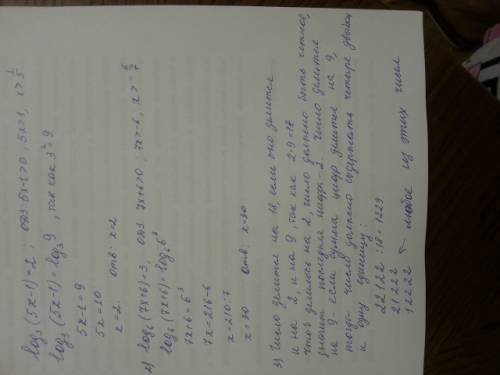 log₃(5x-1)=2; ОДЗ 5x-1>0, 5x>1, x>1/5
log₃(5x-1)=log₃9, так как 3²=9
5x-1=9
5x=10
x=2. отв: x=2
2) log₆(7x+6)=3. ОДЗ 7x+6>0, 7x>-6, x>-6/7
log₆(7x+6)=log₆6³
7x+6=6³
7x=216-6
x=210:7
x=30 отв: x=30
3) Число делится на 18, если оно делится
и на 2, и на 9, так как 2·9=18
чтоб делилось на 2, число должно быть четное,
значит последняя цифра-2. Число делится
на 9-если сумма цифр делится на 9,
тогда число должно содержать четыре двойки
и одну единицу:
22122 :18=1229
21222
12222 ← любое из этих чисел